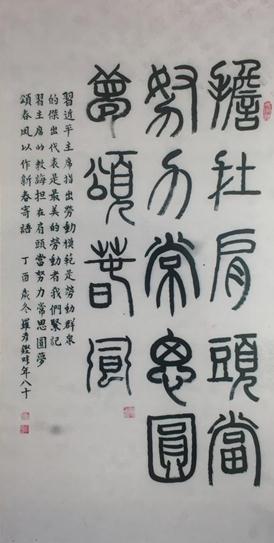 擔在肩頭當
努力常思圓
夢頌春風
習近平主席指出勞動模範是勞動群衆
的傑出代表是最美的勞動者我們緊記
習主席的教誨担在肩頭當努力常思圓夢
頌春風以作新春寄語 丁酉歲冬 羅 時年八十